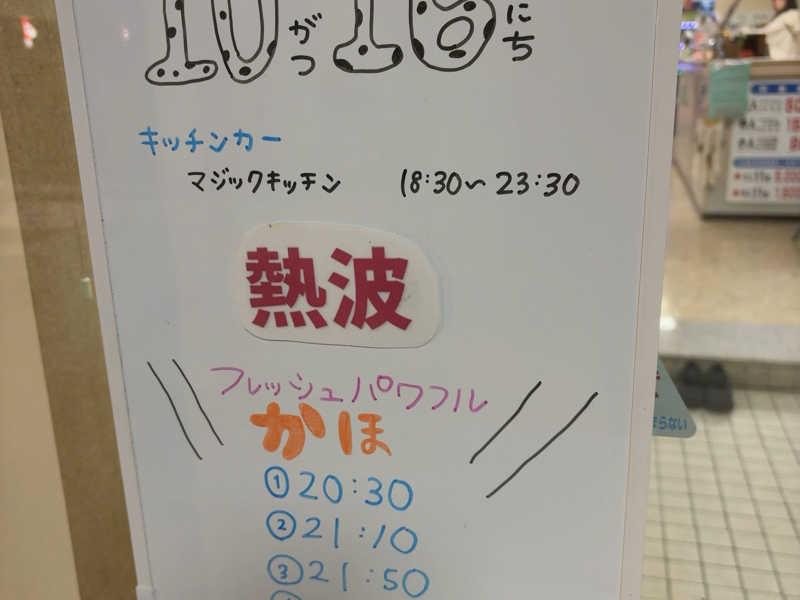 10がつ18にち
キッチンカー
マジックキッチン 18:30～23:30
熱波
フレッシュパワフル
かほ
①20:30
②21:10
③21:50
らない